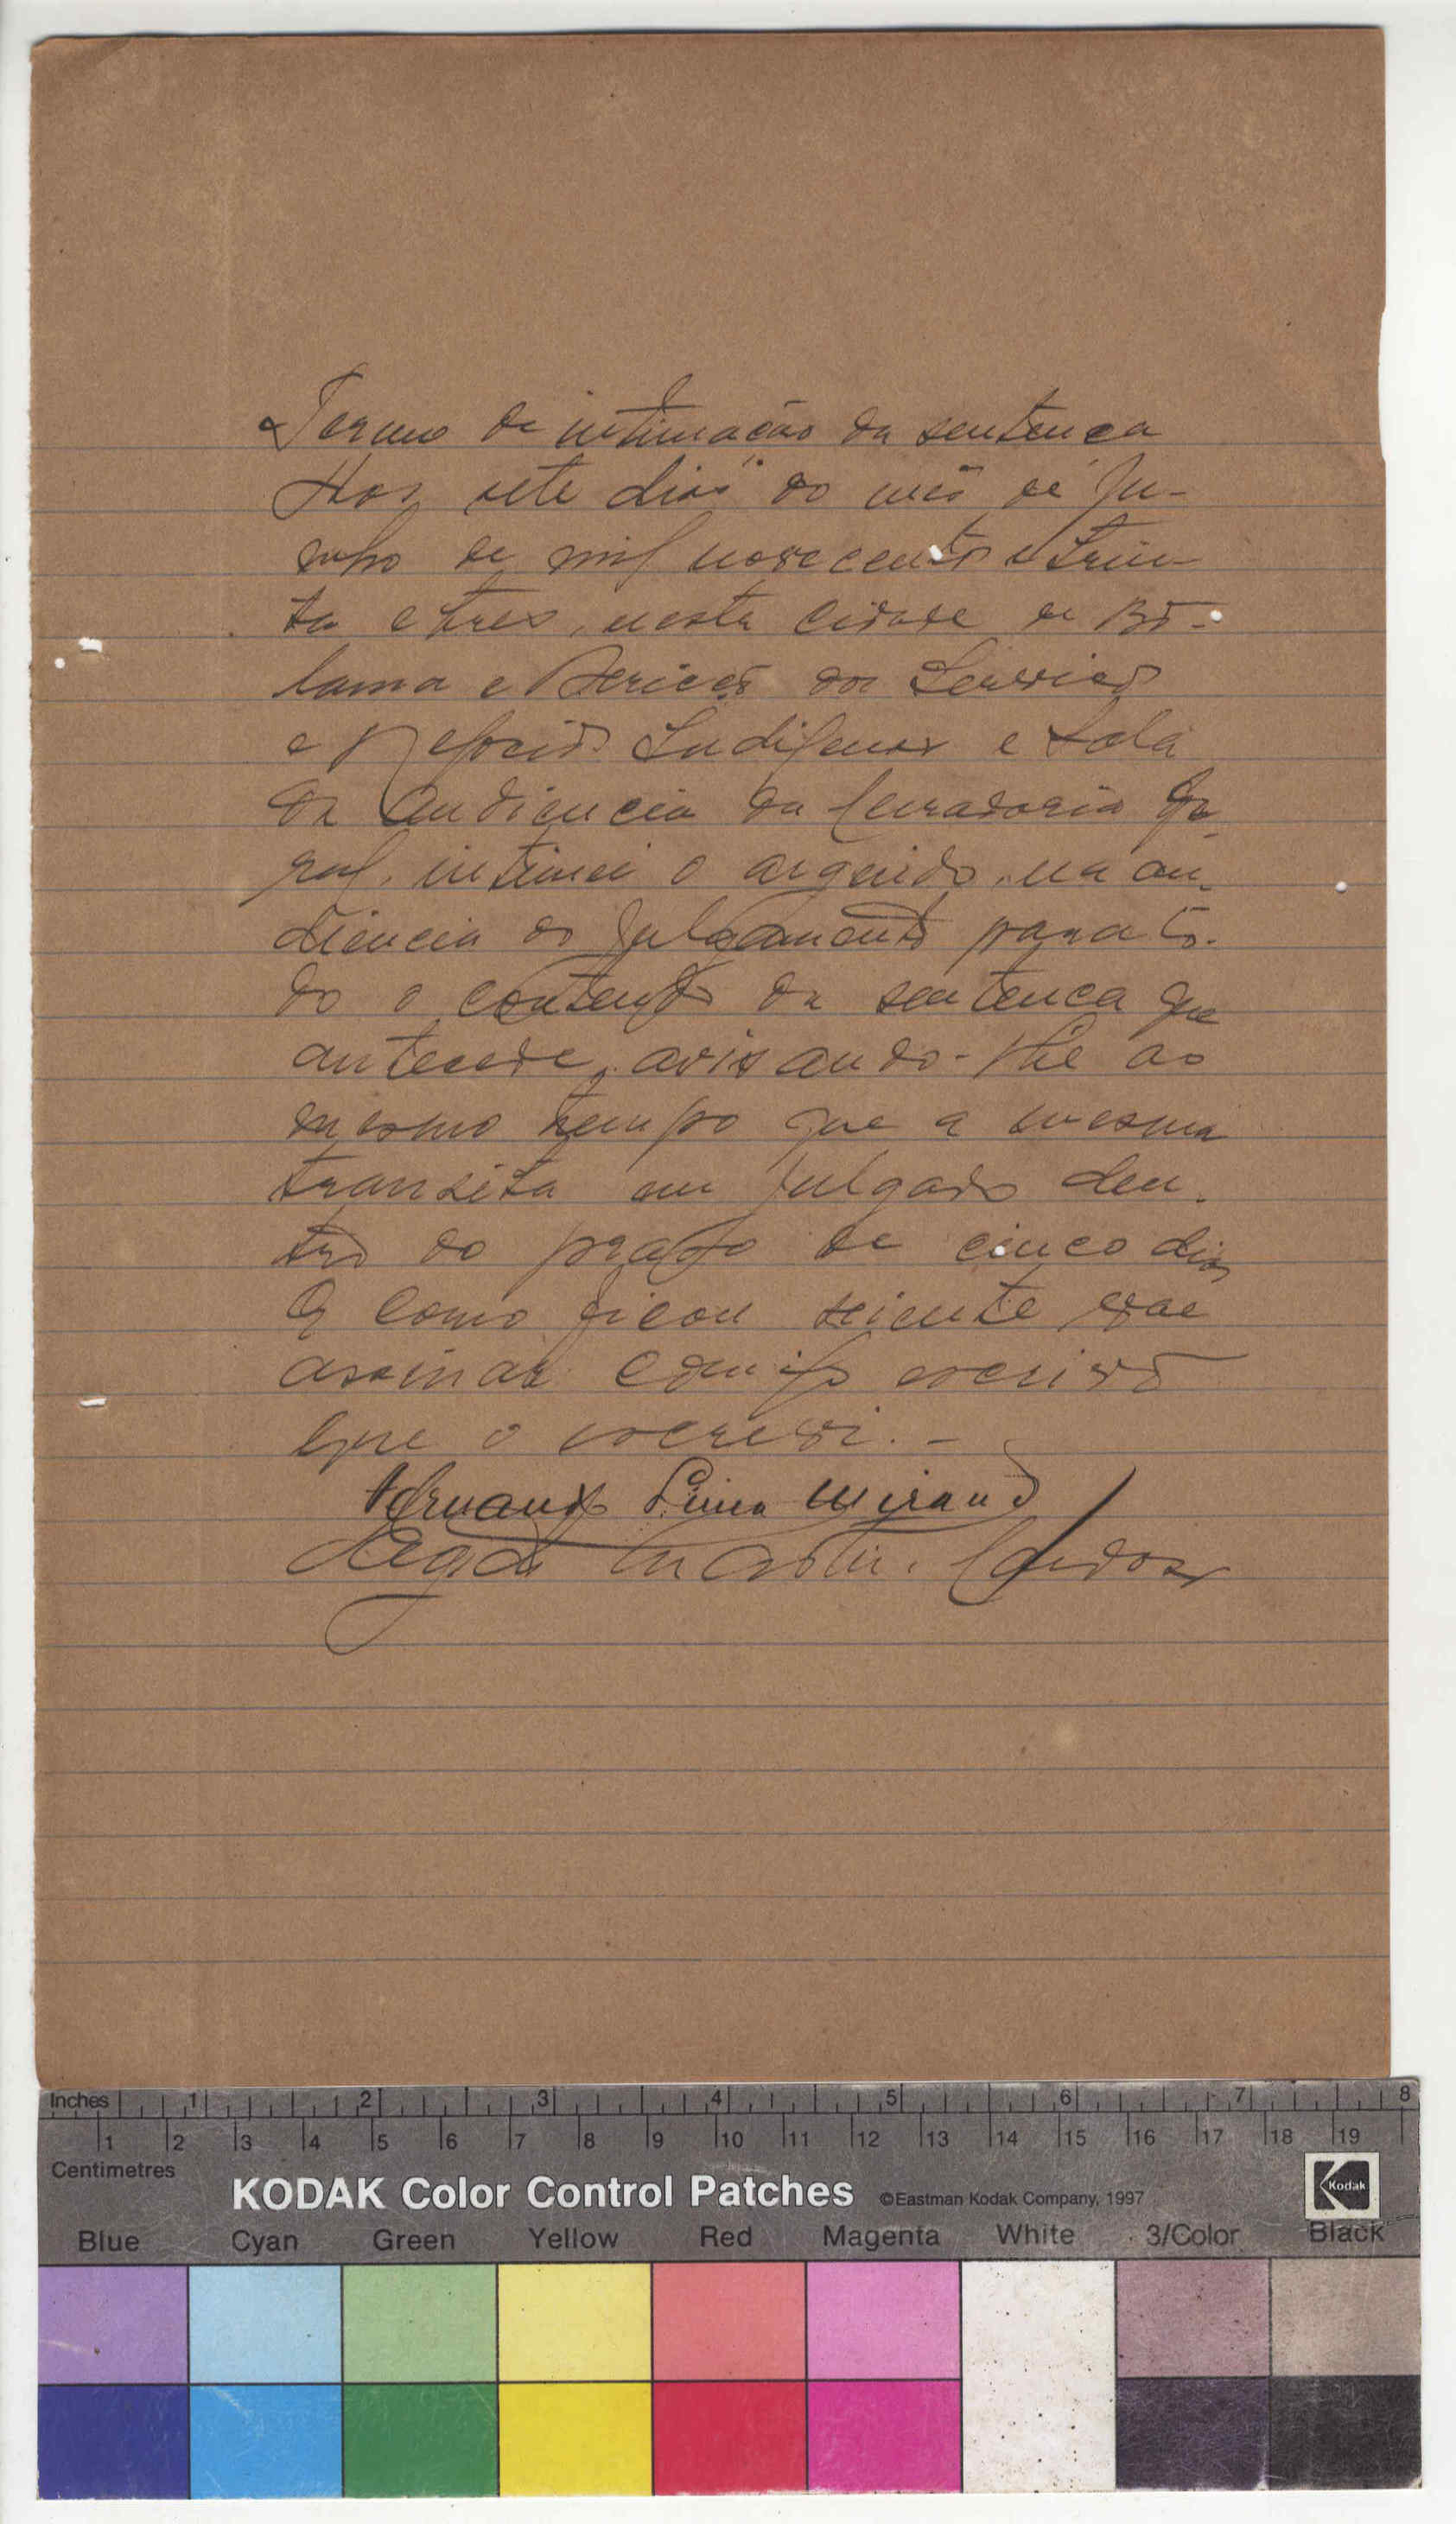 Termo de intimação da sentença
Aos sete dias do mês de Ju-
nho de mil novecentos e trin-
ta e tres, nesta cidade de Bo-
lama e dos Serviços
e Negocios Indigenas e sala
da audiencia da Curadoria Ge-
ral, intimei o arguido, na au-
diencia do julgamento para to-
do o conteudo da sentença que
antecede, avisando-lhe ao
mesmo tempo que a mesma
transita em julgado den-
tro do prazo de cinco dias
E como ficou sciente vae
assinar comigo escrivão
que o escrevi. -
Armando Lima Mirand
Cardoso
Inches 1 2 3 4 5 6 7 8
1 2 3 4 5 6 7 8 9 10 11 12 13 14 15 16 17 18 19
Centimetres
KODAK Color Control Patches ©Eastman Kodak Company, 1997 Kodak
Blue Cyan Green Yellow Red Magenta White 3/Color Black